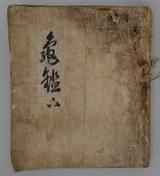 龜鑑六